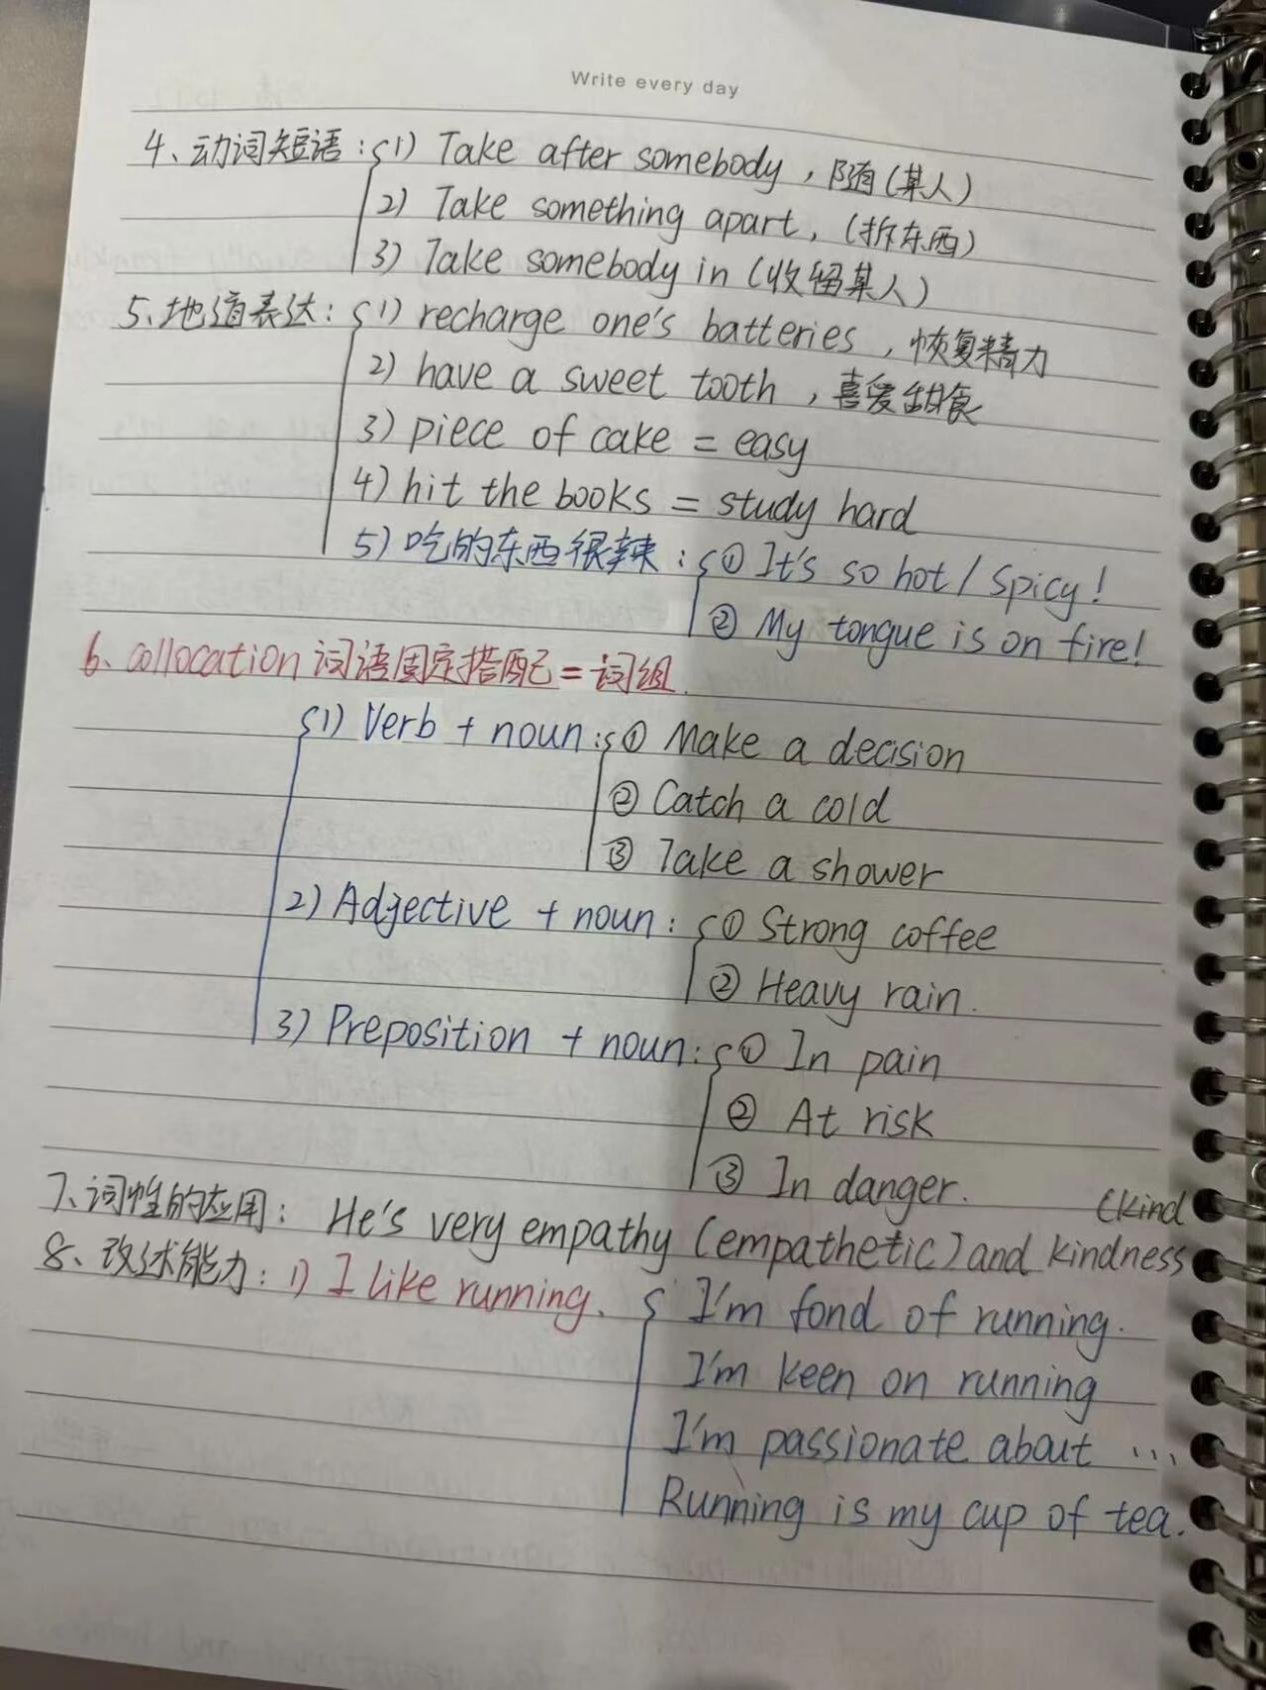 Write every day
4、动词短语：1) Take after somebody，随(某人)
2) Take something apart，(拆东西)
3) Take somebody in (收留某人)
5、地道表达：1) recharge one's batteries，恢复精力
2) have a sweet tooth，喜爱甜食
3) piece of cake = easy
4) hit the books = study hard
5) 吃的东西很辣：① It's so hot / spicy!
② My tongue is on fire!
6、collocation 词语固定搭配=词组.
1) Verb + noun：① Make a decision
② Catch a cold
③ Take a shower
2) Adjective + noun：① Strong coffee
② Heavy rain.
3) Preposition + noun：① In pain
② At risk
③ In danger.
(kind
7、词性的应用：He's very empathy (empathetic) and kindness
8、改述能力：1) I like running. I'm fond of running.
I'm keen on running
I'm passionate about ...
Running is my cup of tea.